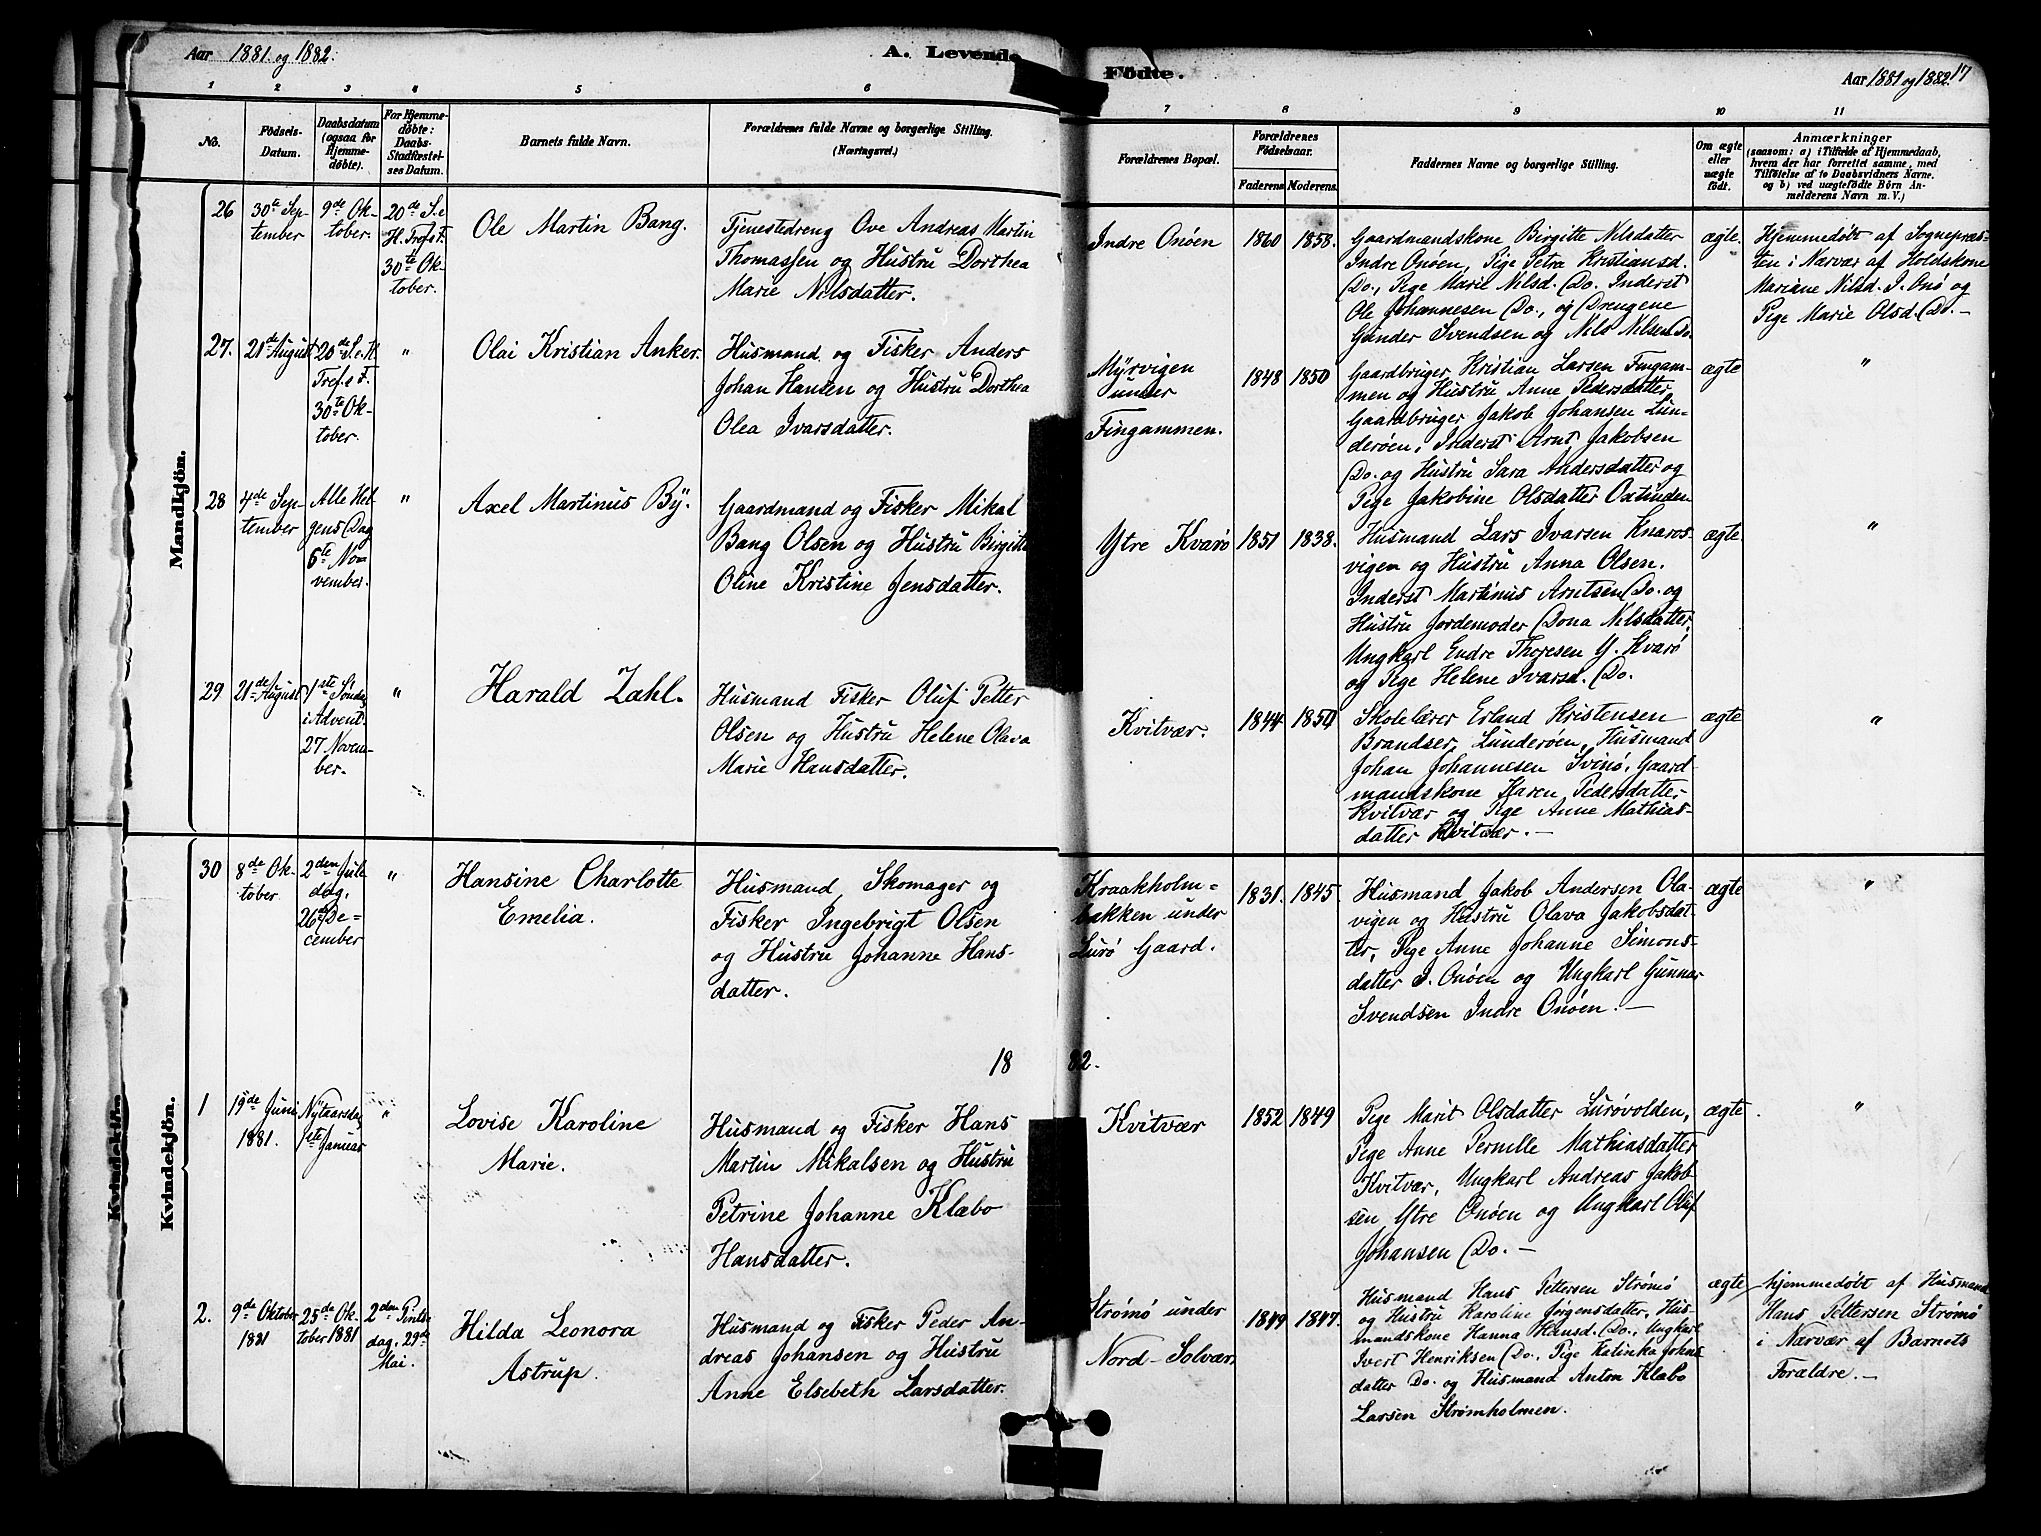 Aar 1881 og 1882.
A. Levende
Födte.
Aar 1881 og 1882. 17
1 2 3 4 5 6 7 8 9 10 11
No.
Födsels-
Datum.
Daabsdatum
(ogsaa for
Hjemme-
døbte).
For Hjemme-
døbte:
Daabs-
Stadfæstel-
ses Datum.
Barnets fulde Navn.
Forældrenes fulde Navne og borgerlige Stilling.
(Næringsvei.)
Forældrenes Bopæl.
Forældrenes
Födselsaar.
Faderens.
Moderens.
Faddernes Navne og borgerlige Stilling.
Om ægte
eller
uægte
født.
Anmærkninger
(saasom: a) i Tilfælde af Hjemmedaab,
hvem der har forrettet samme, med
Tilføielse af to Daabsvidners Navne.
og b) ved uægtefödte Börn An-
melderens Navn m. V.)
Mandkjön.
26
30te Sep-
tember
9de Ok-
tober.
20de S. e
H. Tref. F.
30te Ok-
tober.
Ole Martin Bang.
Tjenestedreng Ove Andreas Martin
Thomassen og Hustru Dorthea
Marie Nilsdatter.
Indre Onöen
1860
1858.
Gaardmandskone Birgitte Nilsdatter
Indre Onöen, Pige Petra Kristiansd.
Do., Pige Marie Nilsd. Do. Inderst
Ole Johannesen Do., og Drengene
Gunder Svendsen og Nils Nilsen Do.
ægte.
Hjemmedøbt af Sogne­præs-
ten i Nærvær af Holdskone
Mariane Nilsd. I. Onö og
Pige Marie Olsd. Do. —
27.
21de August
20de S. e. H.
Tref. s F.
30te Ok-
tober.
"
Olai Kristian Anker.
Husmand og Fisker Anders
Johan Hansen og Hustru Dorthea
Olea Ivarsdatter.
Myrvigen
under
Fingammen.
1848
1850
Gaardbruger Kristian Larsen Fingam-
men og Hustru Anne Pedersdatter
Gaardbruger Jakob Johansen Lun-
deröen, Inderst Arnt Jakobsen
Do. og Hustru Sara Andersdatter og
Pige Jakobine Olsdatter Oxtinden
ægte
"
28
4de Sep-
tember
Alle Hel-
gens Dag
6te No-
vember.
"
Axel Martinus By.
Gaardmand og Fisker Mikal
Bang Olsen og Hustru Birgitte
Oline Kristine Jensdatter.
Ytre Kvarö
1851
1838.
Husmand Lars Ivarsen Knaros-
vigen og Hustru Anna Olsen.
Inderst Martinus Arntsen Do. og
Hustru Jordemoder Dona Nilsdatter,
Ungkarl Endre Thoresen Y. Kvarö
og Pige Helene Ivarsd. Do.
ægte
"
29
21de August
1ste Sönda
i Advent.
27 Novem-
ber.
"
Harald Zahl.
Husmand Fisker Oluf Petter
Olsen og Hustru Helene Olava
Marie Hansdatter.
Kvitvær.
1844
1850
Skolelærer Erland Kristensen
Brandser, Lunderöen, Husmand
Johan Johannesen Svinö, Gaard-
mandskone Karen Pedersdatter
Kvitvær og Pige Anne Mathias-
datter Kvitvær. —
ægte
"
Kvindekjön
Kvindekjön.
30
8de Ok-
tober
2den Jule
dag.
26de De=
cember
"
Hansine Charlotte
Emelia.
Husmand, Skomager og
Fisker Ingebrigt Olsen
og Hustru Johanne Hans-
datter.
Kraakholm=
bakken under
Lurö Gaard.
1831.
1845.
Husmand Jakob Andersen Ola-
vigen og Hustru Olava Jakobsdat-
ter, Pige Anne Johanne Simons-
datter I. Onöen og Ungkarl Gunnar
Svendsen Indre Onöen. —
ægte
"
1882.
1
19de Juni
1881.
Nytaarsdag
1ste Januar
"
Lovise Karoline
Marie.
Husmand og Fisker Hans
Martin Mikalsen og Hustru
Petrine Johanne Klæbo
Hansdatter.
Kvitvær
1852
1849
Pige Marit Olsdatter Luróvolden,
Pige Anne Pernille Mathiasdatter
Kvitvær, Ungkarl Andreas Jakob-
sen Ytre Onöen og Ungkarl Oluf
Johansen Do. —
ægte
"
2.
9de Oktober
1881
25de Ok-
tober 1881
2den Pints-
dag. 29de
Mai.
Hilda Leonora
Astrup.
Husmand og Fisker Peder An-
dreas Johansen og Hustru
Anne Elsebeth Larsdatter.
Strömö under
Nord-Solvær.
1849
1847.
Husmand Hans Pettersen Strömö
og Hustru Karoline Jörgensdatter, Hus-
mandskone Hanna Hansd. Do., Ungkarl
Ivert Henriksen Do., Pige Kalinka Johns
datter Do. og Husmand Anton Klæbo
Larsen Strömholmen.
ægte
hjemmedøbt af Husmand
Hans Pettersen Strömö
i Nærvær af Barnets
Forældre. —